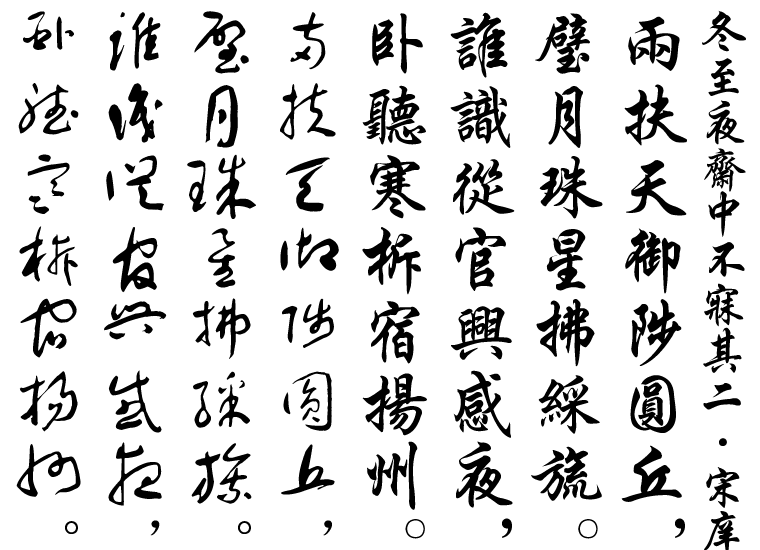 冬至夜齋中不寐其二·宋庠
兩扶天御陟圓丘，
璧月珠星拂綵旒。
誰識從官興感夜，
卧聽寒柝宿揚州。
兩扶天御陟圓丘，
璧月珠星拂綵旒。
誰識從官興感夜，
卧聽寒柝宿揚州。